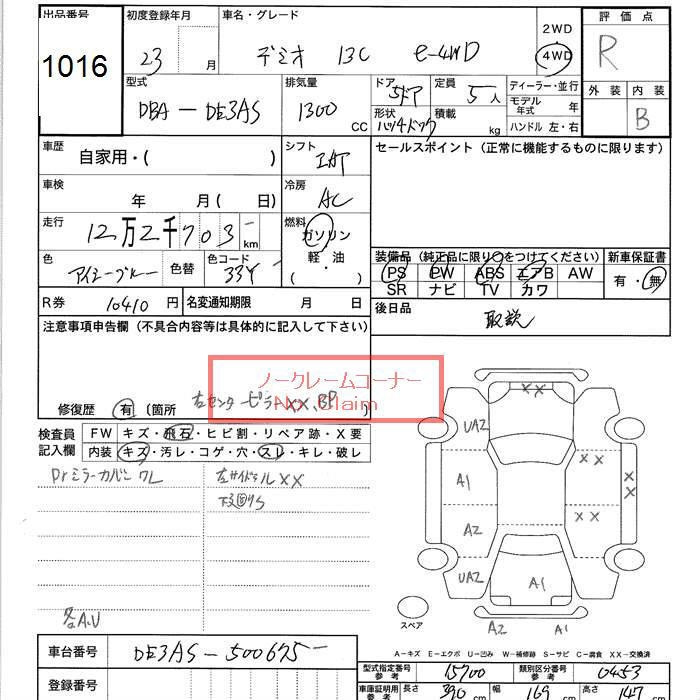 出品番号 1016
初度登録年月 23 月
車名・グレード デミオ 13C e-4WD
2WD
4WD
評価点 R
外装 内装 B
型式 DBA-DE3AS
排気量 1300 CC
ドア 5ドア
形状 ハッチバック
定員 5人
積載 kg
ディーラー・並行
モデル年式 年
ハンドル 左・右
車歴 自家用・( )
シフト
車検 年 月( 日)
冷房 AC
走行 12万2千703- km
燃料 ガソリン
軽・油
( ・ )
色 アイシーブルー 色替 色コード 33Y
セールスポイント (正常に機能するものに限ります)
装備品 (純正品に限り○をつけてください) 新車保証書
PS PW ABS エアB AW 有・無
SR ナビ TV カワ
R券 10410 円 名変通知期限 月 日
後日品 取説
注意事項申告欄 (不具合内容等は具体的に記入して下さい)
ノークレームコーナー
No Claim
修復歴 有 (箇所 左センターピラーXX、BP )
検査員記入欄
FW キズ・飛石・ヒビ割・リペア跡・X要
内装 キズ・汚レ・コゲ・穴・スレ・キレ・破レ
Drミラーカバー ワレ
左サイドシルXX
下廻りS
各A.U
XX
UA2
A1 XX XX
A2 XX
UA2 A1
スペア
A2 A1
A-キズ E-エクボ U-凹み W-補修跡 S-サビ C-腐食 XX-交換済
車台番号 DE3AS-500675-
型式指定番号 参考 15700 類別区分番号 参考 0453
登録番号
車庫証明用 参考 長さ 390 cm 幅 169 cm 高さ 147 cm